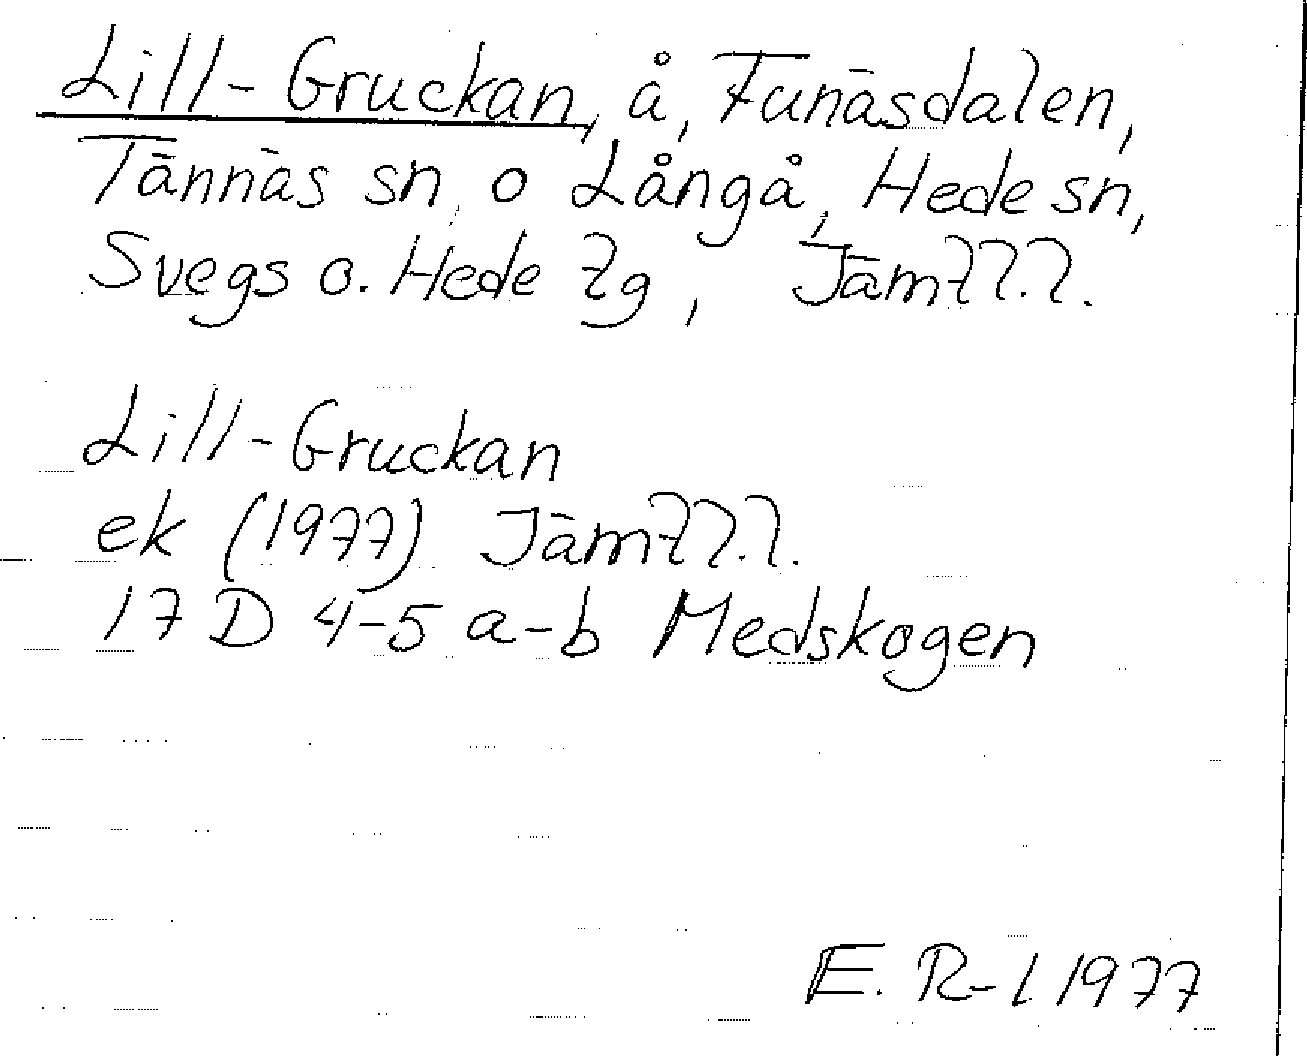 Lill-Gruckan, å, Funäsdalen,
Tännäs sn, o Långå, Hede sn,
Svegs o. Hede tg, Jämtl.l.
Lill-Gruckan
ek (1977) Jämtl.l.
17 D 4-5 a-b Medskogen
E. R-l. 1977